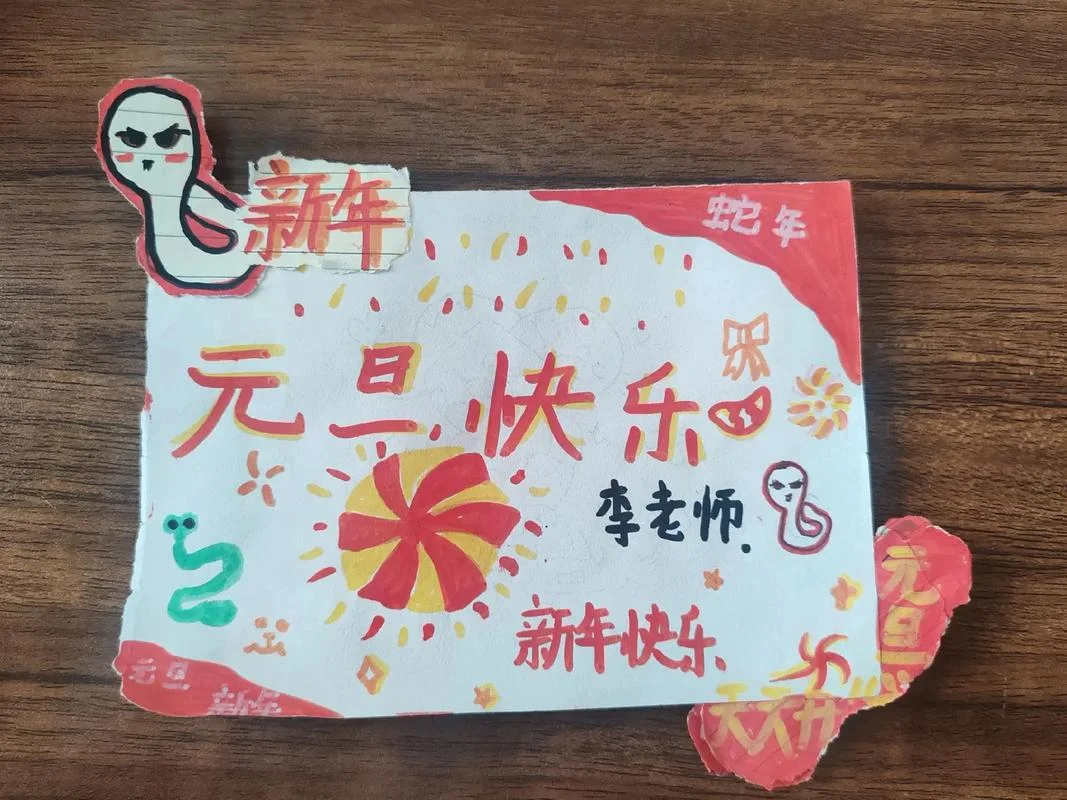 新年
蛇年
元旦快乐
李老师.
新年快乐
元旦
新年
元旦
天天开心